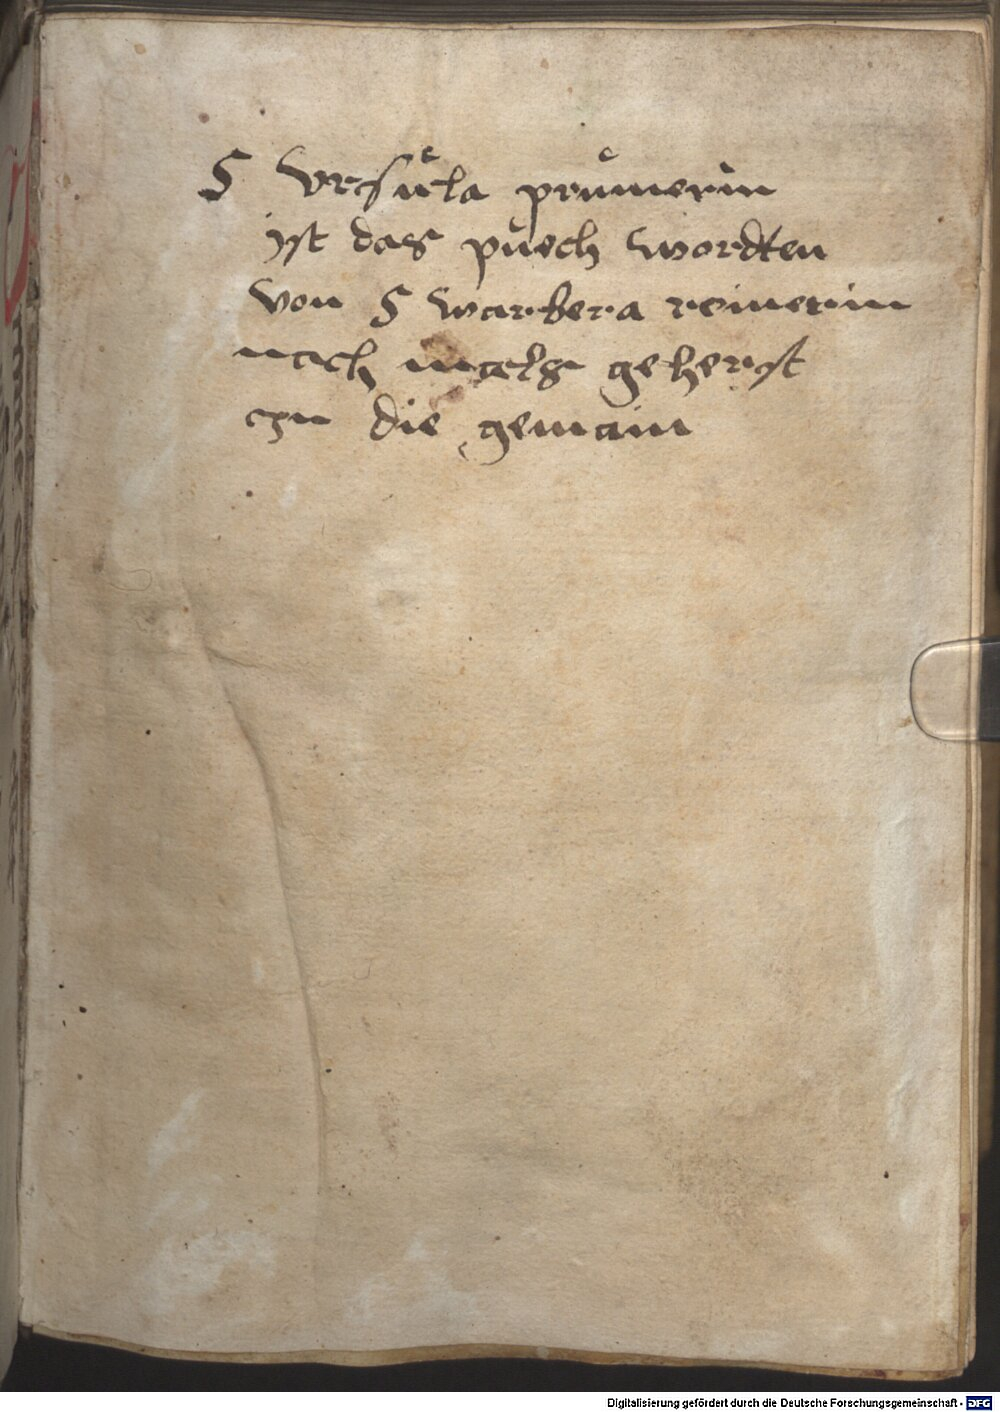 S Vrsůla průmerin
yst das půech wordten
von S warbera reimerin
nach geherst
czu die gemain
Digitalisierung gefördert durch die Deutsche Forschungsgemeinschaft - DFG